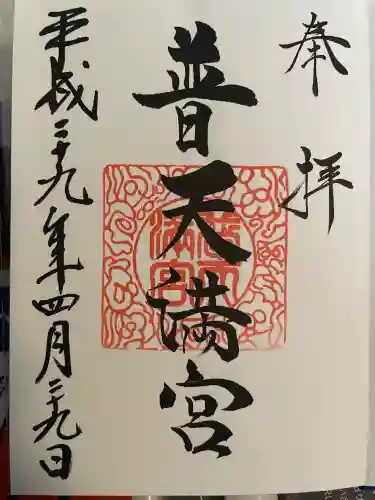 奉拝
普天満宮
平成二十九年四月二十九日
普天満宮